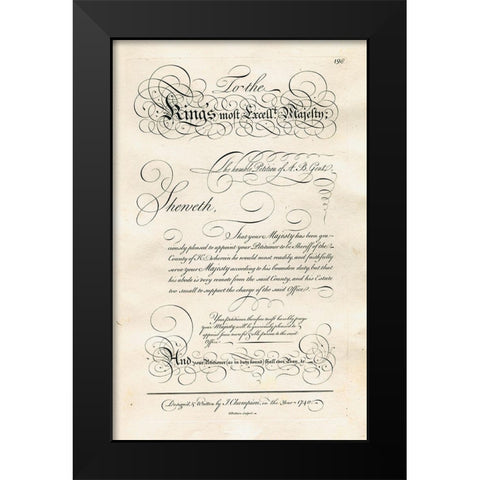 198
To the
King's most Excell.t Majesty:
The humble Petition of A.B. Gent.
Sheweth,
That your Majesty has been gra-
ciously pleased to appoint your Petitioner to be Sheriff of the
County of K. wherein he would most readily and faithfully
serve your Majesty according to his bounden duty, but that
his abode is very remote from the said County, and his Estate
too small to support the charge of the said Office.
Your petitioner therefore most humbly prays
your Majesty will be graciously pleased to
appoint some more fit & able person to the said
Office.
And your Petitioner (as in duty bound) shall ever Pray, &c.
Design'd & Written by J. Champion, in the Year 1740.
sculpsit